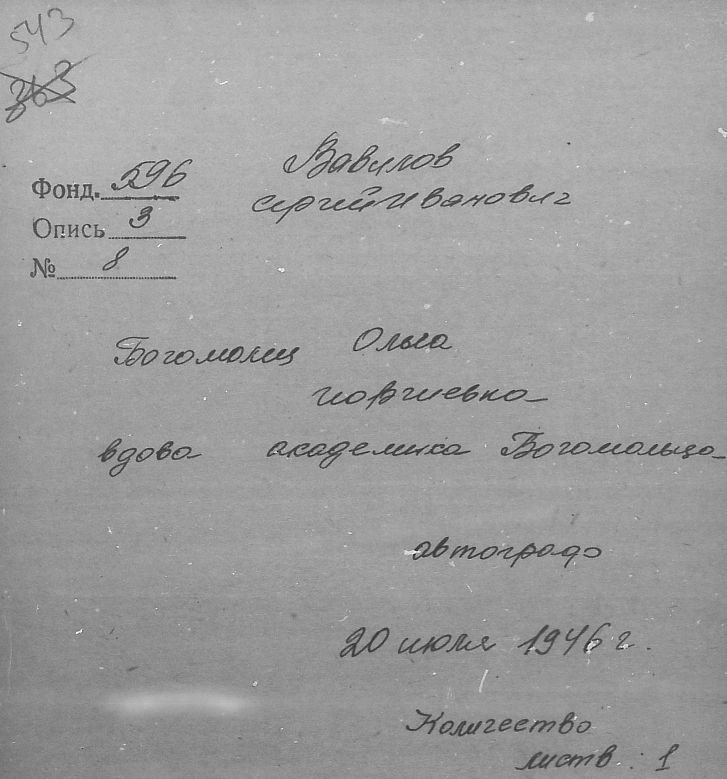 543
263
Фонд. 596
Вавилов
Опись 3
Сергей Иванович
№ 8
Богомолец Ольга
Георгиевна
вдова академика Богомольца
автограф
20 июля 1946 г.
Количество
листв : 1